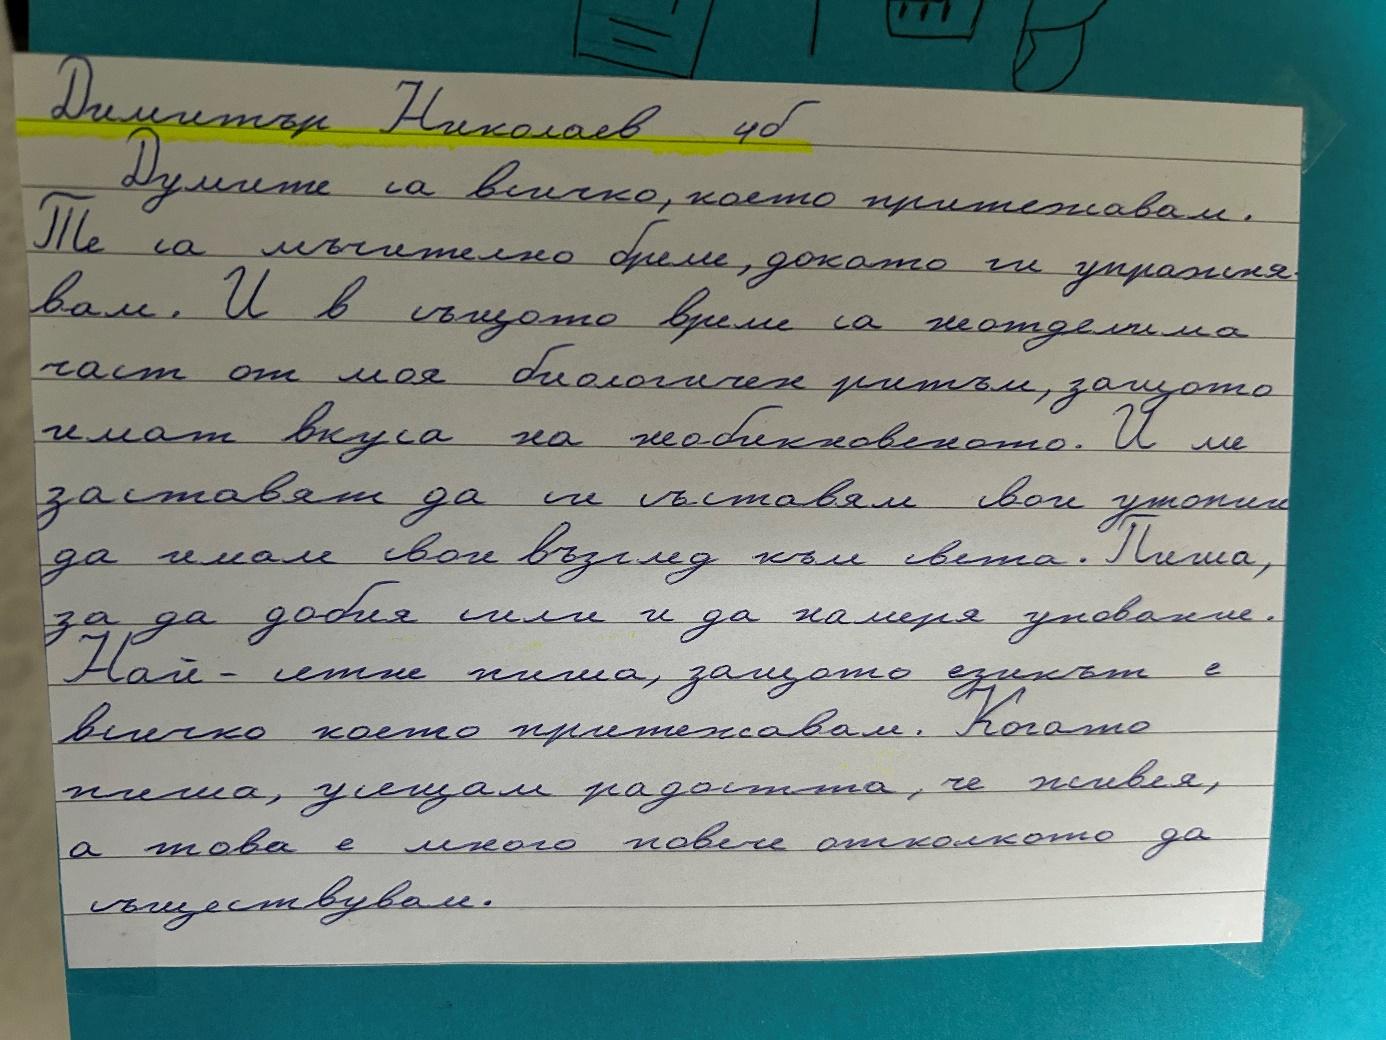 Димитър Николаев 4б
Думите са всичко, което притежавам.
Те са мъчително бреме, докато ги упражня-
вам. И в същото време са неотделима
част от моя биологичен ритъм, защото
имат вкуса на необикновеното. И ме
заставят да си съставям свои утопии
да имам свои възглед към света. Пиша,
за да добия сили и да намеря упование.
Най-сетне пиша, защото езикът е
всичко което притежавам. Когато
пиша, усещам радостта, че живея,
а това е много повече отколкото да
съществувам.